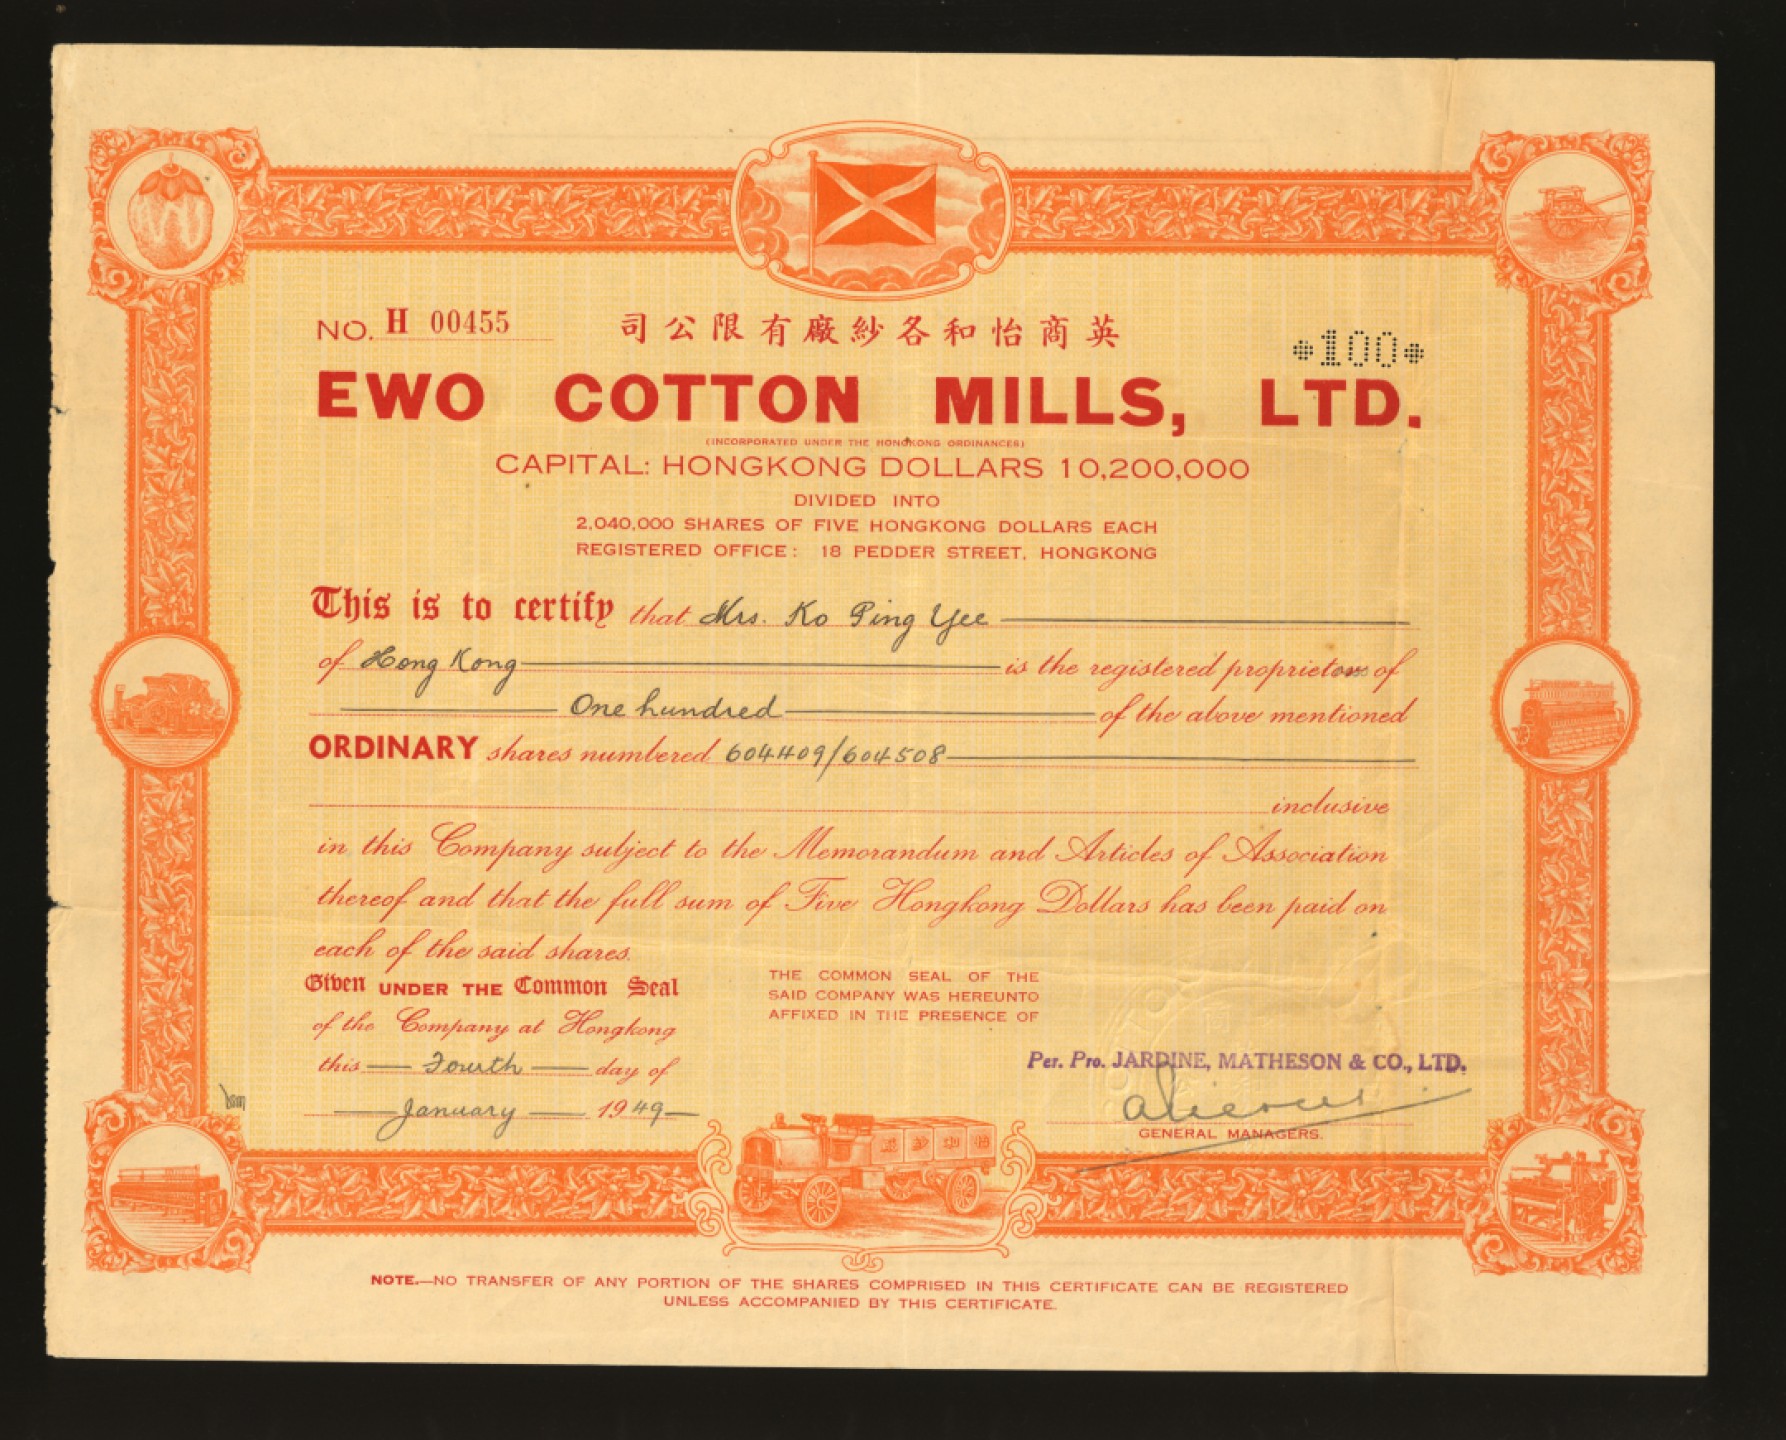 NO. H 00455
司公限有廠紗各和怡商英
*100*
EWO COTTON MILLS, LTD.
(INCORPORATED UNDER THE HONGKONG ORDINANCES)
CAPITAL: HONGKONG DOLLARS 10,200,000
DIVIDED INTO
2,040,000 SHARES OF FIVE HONGKONG DOLLARS EACH
REGISTERED OFFICE: 18 PEDDER STREET, HONGKONG
This is to certify that Mrs. Ko Ping Yee
of Hong Kong is the registered proprietor of
One hundred of the above mentioned
ORDINARY shares numbered 604409/604508
inclusive
in this Company subject to the Memorandum and Articles of Association
thereof and that the full sum of Five Hongkong Dollars has been paid on
each of the said shares.
Given UNDER THE Common Seal
of the Company at Hongkong
this Fourth day of
January 1949
THE COMMON SEAL OF THE
SAID COMPANY WAS HEREUNTO
AFFIXED IN THE PRESENCE OF
Per. Pro. JARDINE, MATHESON & CO., LTD.
GENERAL MANAGERS.
NOTE.—NO TRANSFER OF ANY PORTION OF THE SHARES COMPRISED IN THIS CERTIFICATE CAN BE REGISTERED
UNLESS ACCOMPANIED BY THIS CERTIFICATE.